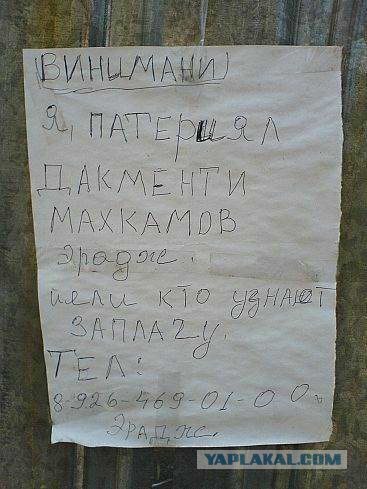 (ВИНИМАНИ)
Я, ПАТЕРИЯЛ
ДАКМЕНТИ
МАХКАМОВ
Эрадж.
ийли кто узнают
ЗАПЛАЧУ.
ТЕЛ:
8-926-469-01-00.
ЭРАДЖ.
YAPLAKAL.COM